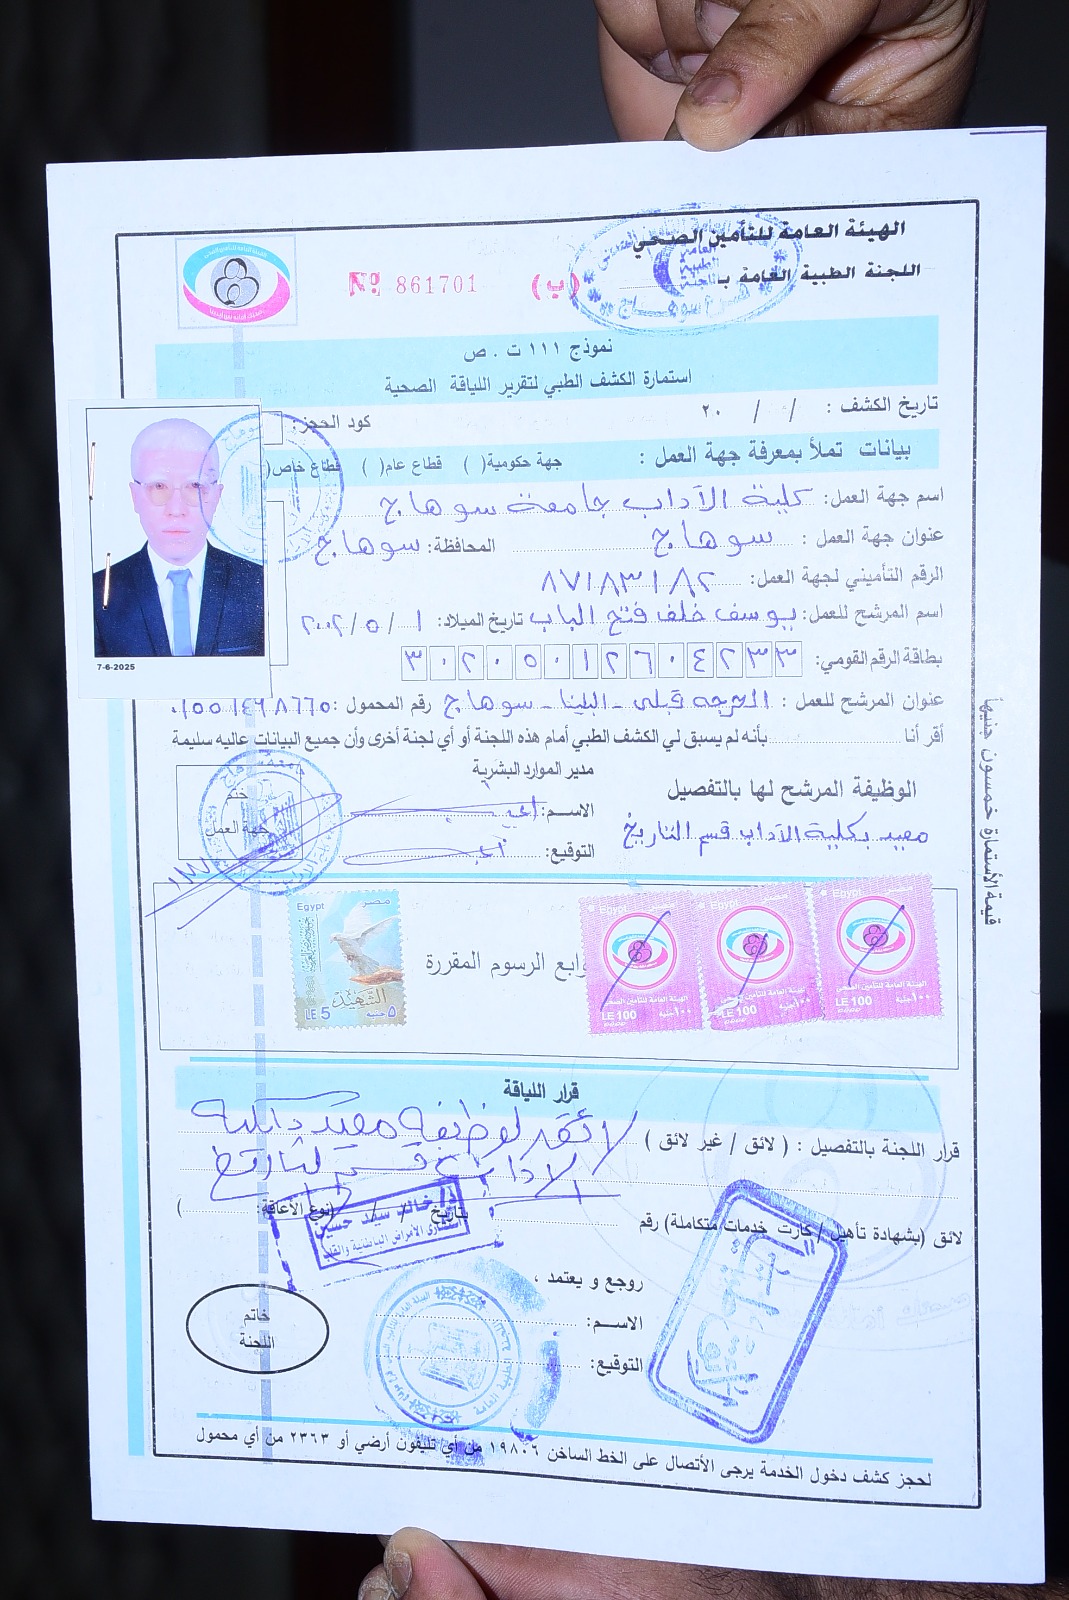 الهيئة العامة للتأمين الصحي
اللجنة الطبية العامة بـ
№ 861701 (ب)
نموذج ١١١ ت . ص
استمارة الكشف الطبي لتقرير اللياقة الصحية
تاريخ الكشف : / / ٢٠
كود الحجز:
بيانات تملأ بمعرفة جهة العمل : جهة حكومية( ) قطاع عام( ) قطاع خاص(
اسم جهة العمل: كلية الآداب جامعة سوهاج
عنوان جهة العمل : سوهاج المحافظة: سوهاج
الرقم التأميني لجهة العمل: ٨٧١٨٣١٨٢
اسم المرشح للعمل: يوسف خلف فتح الباب تاريخ الميلاد: ١ / ٥ / ٢٠٠٢
بطاقة الرقم القومي: ٣٠٢٠٥٠١٢٦٠٤٢٣٣
7-6-2025
عنوان المرشح للعمل : الحرجه قبلى - البلينا - سوهاج رقم المحمول :
أقر أنا بأنه لم يسبق لي الكشف الطبي أمام هذه اللجنة أو أي لجنة أخرى وأن جميع البيانات عاليه سليمة
الوظيفة المرشح لها بالتفصيل
معيد بكلية الآداب قسم التاريخ
مدير الموارد البشرية
الاسم:
التوقيع:
ختم
جهة العمل
قيمة الأستمارة خمسون جنيهاً
Egypt مصر
الشهيد
LE 5 ٥ جنيه
وابع الرسوم المقررة
Egypt مصر
الهيئة العامة للتأمين الصحى
LE 100 ١٠٠ جنيه
Egypt مصر
الهيئة العامة للتأمين الصحى
LE 100 ١٠٠ جنيه
Egypt مصر
الهيئة العامة للتأمين الصحى
LE 100 ١٠٠ جنيه
قرار اللياقة
قرار اللجنة بالتفصيل : ( لائق / غير لائق ) لائق لوظيفة معيد بكلية
الاداب قسم التاريخ
لائق (بشهادة تأهيل / كارت خدمات متكاملة) رقم بتاريخ / / (نوع الأعاقة: )
د/ خالد سيد حسين
روجع و يعتمد ،
الاسم:
التوقيع:
خاتم
اللجنة
لحجز كشف دخول الخدمة يرجى الأتصال على الخط الساخن ١٩٨٠٦ من أي تليفون أرضي أو ٢٣٦٣ من أي محمول